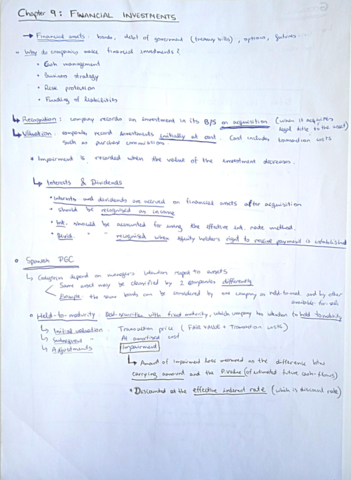 Chapter 9: FINANCIAL INVESTMENTS
→ Financial assets: bonds, debt of government (treasury bills), options, futures...
• Why do companies make financial investments?
• Cash management
• Business strategy
• Risk protection
• Funding of liabilities
↳ Recognition: company records an investment in its B/S on acquisition (when it acquires legal title to the asset)
↳ Valuation: companies record investments initially at cost. Cost includes transaction costs
such as purchase commissions
• Impairment is recorded when the value of the investment decreases.
↳ Interests & Dividends
• Interests and dividends are accrued on financial assets after acquisition
• should be recognised as income
• Int. should be accounted for using the effective int. rate method.
• Divid. " " recognised when equity holders right to receive payment is established
• Spanish PGC
↳ Categories depend on manager's intention respect to assets
Same asset may be classified by 2 companies differently
Example the same bonds can be considered by one company as held-to-mat. and by other
available-for-sale
• Held-to-maturity: Debt securities with fixed maturity, which company has intention to hold to maturity
↳ Initial valuation: Transaction price (FAIR VALUE + Transaction costs)
↳ Subsequent " At amortised cost
↳ Adjustments Impairment
↳ Amount of impairment loss measured as the difference btw
carrying amount and the P.value (of estimated future cash flows)
• Discounted at the effective interest rate (which is discount rate)